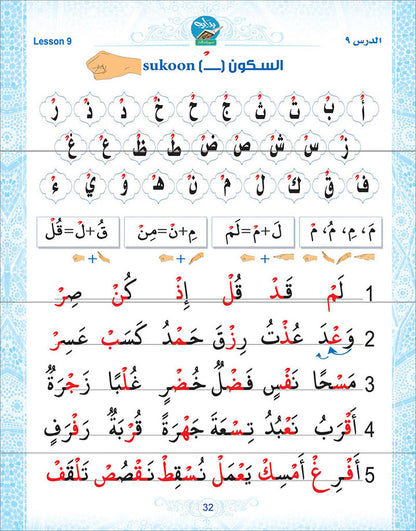 Lesson 9 الدرس ٩
السكون (ـْـ) sukoon
أْ بْ تْ ثْ جْ حْ خْ دْ ذْ رْ
زْ سْ شْ صْ ضْ طْ ظْ عْ غْ
فْ قْ كْ لْ مْ نْ هْ وْ يْ ءْ
مَ، مِ، مُ، مْ لَ+مْ=لَمْ مِ+نْ=مِنْ قُ+لْ=قُلْ
1 لَمْ قَدْ قُلْ إِذْ كُنْ صِرْ
2 وَعْدَ عُذْتُ رِزْقَ حَمْدُ كَسَبْ عَسِرْ
3 مَسْحًا نَفْسٍ فَضْلُ خُضْرٍ غُلْبًا زَجْرَةٌ
4 أَقْرَبُ نَعْبُدُ تِسْعَةَ جَهْرَةً قُرْبَةٌ رَفْرَفٍ
5 أَفْرِغْ أَمْسِكْ يَعْمَلْ نُسْقِطْ نَقْصُصْ تَلْقَفْ
32